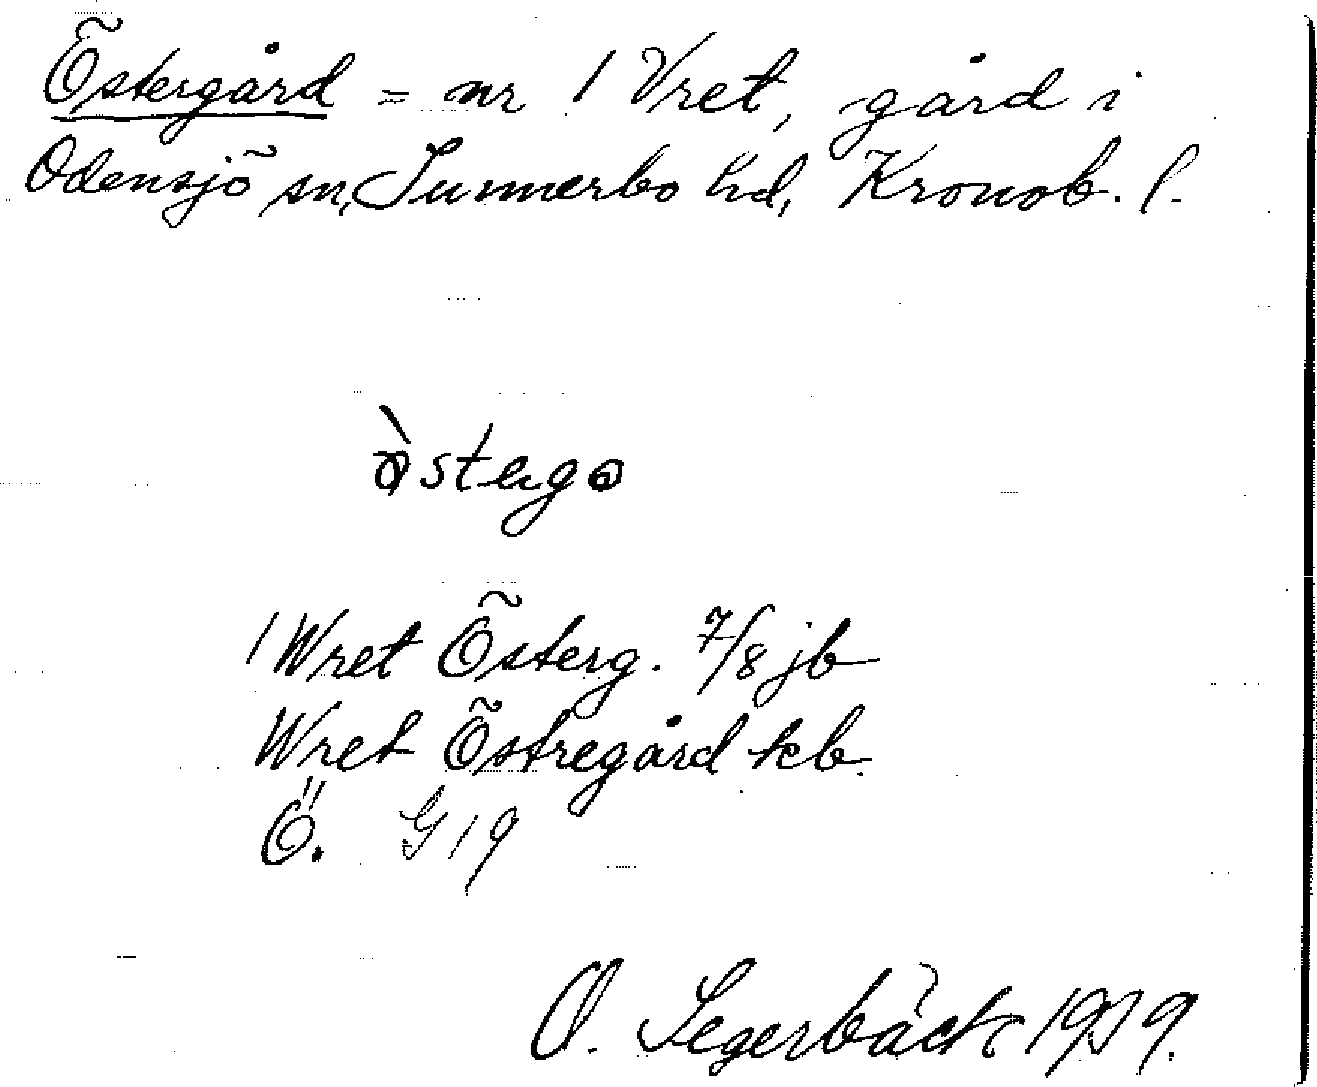 Östergård = nr 1 Vret, gård i
Odensjö sn, Sunnerbo hd, Kronob. l.
1 Wret Österg. 7/8 jb
Wret Östregård kb.
Ö. G 19
O. Segerbäck 1919.